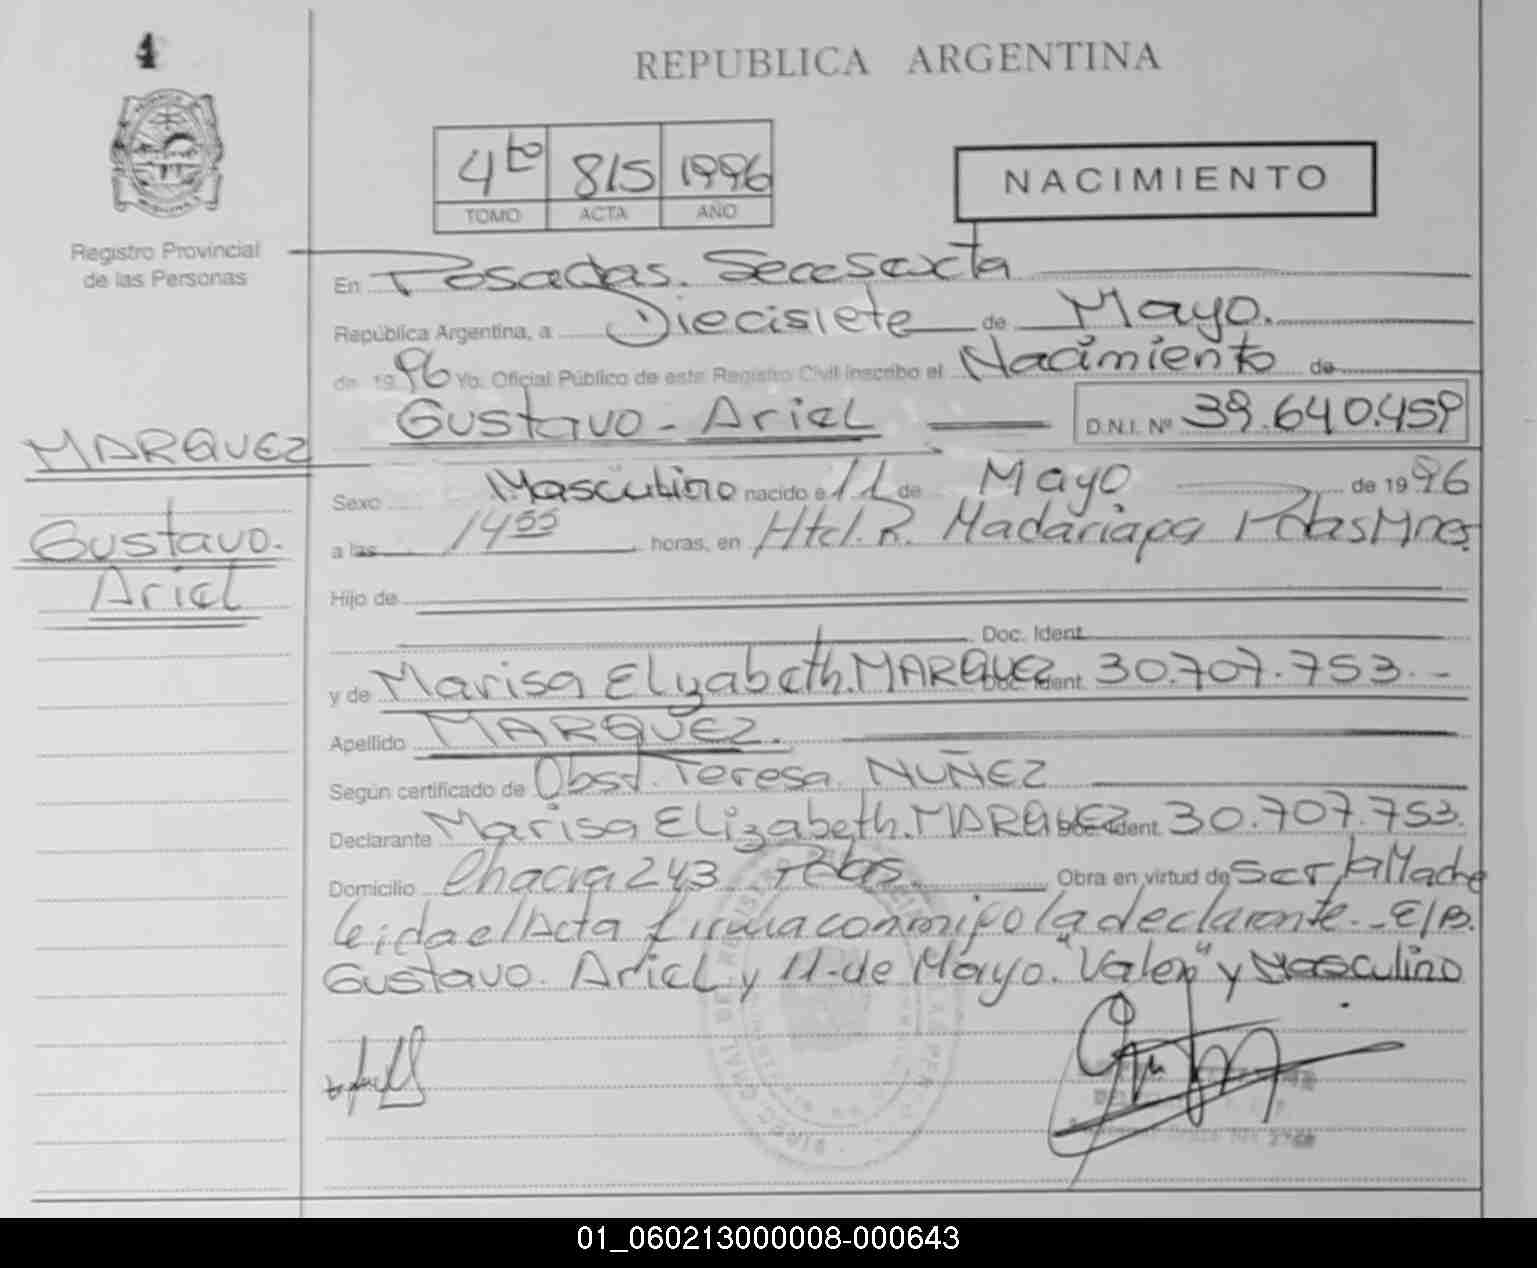 4
REPUBLICA ARGENTINA
4to 815 1996
TOMO ACTA AÑO
NACIMIENTO
Registro Provincial
de las Personas
En Posadas. Secc Sexta
República Argentina, a Diecisiete de Mayo.
de 1996 Yo. Oficial Público de este Registro Civil inscribo el Nacimiento de
Gustavo - Ariel D.N.I. Nº 39.640.459
MARQUEZ
Gustavo.
Ariel
Sexo Masculino nacido el 11 de Mayo de 1996
a las 14 horas, en Htal. R. Madariaga Pdas Mnes.
Hijo de
Doc. Ident.
y de Marisa Elyzabeth. MARQUEZ Doc. Ident. 30.707.753.-
Apellido MARQUEZ.
Según certificado de Obst. Teresa NUÑEZ
Declarante Marisa Elizabeth. MARQUEZ Doc. Ident. 30.707.753.
Domicilio Chacra 243 Pdas. Obra en virtud de ser la Madre
leida el Acta firma conmigo la declarante. - E/B.
Gustavo. Ariel y 11 - de Mayo. "Valen" y Masculino
01_060213000008-000643